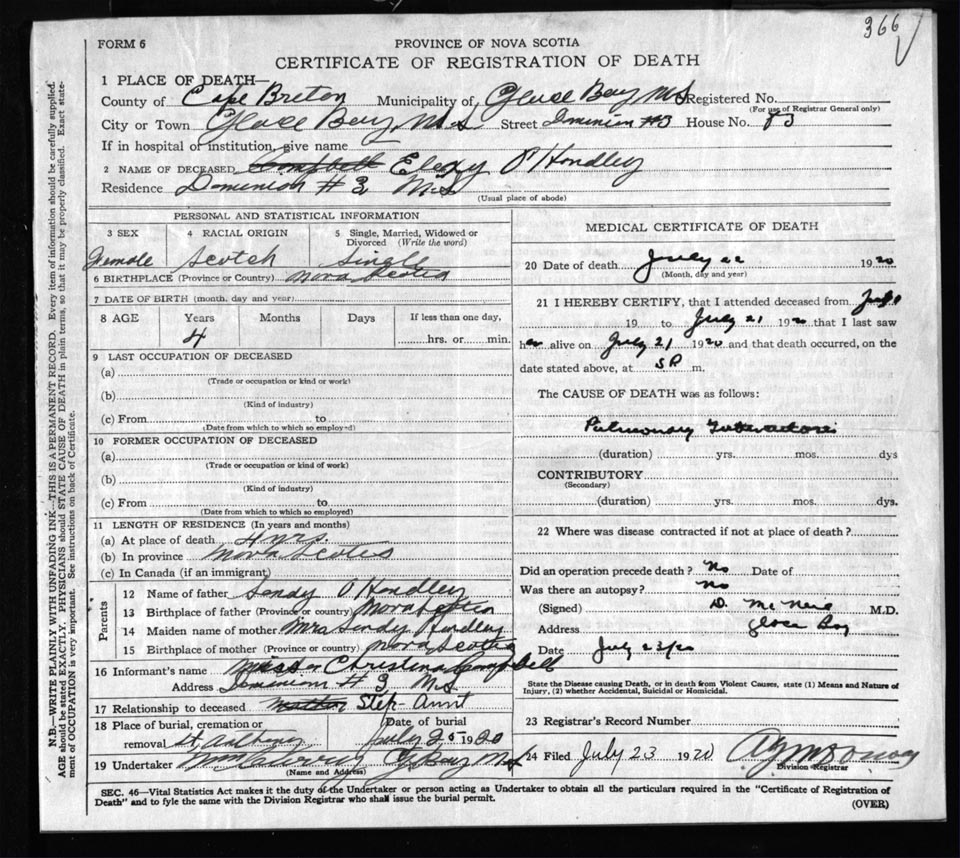 366
FORM 6
PROVINCE OF NOVA SCOTIA
CERTIFICATE OF REGISTRATION OF DEATH
1 PLACE OF DEATH—
County of Cape Breton Municipality of Glace Bay NS Registered No.
(For use of Registrar General only)
City or Town Glace Bay, NS Street Dominion #3 House No. 83
If in hospital or institution, give name
2 NAME OF DECEASED Campbell O'Handley
Residence Dominion # 3 NS
(Usual place of abode)
PERSONAL AND STATISTICAL INFORMATION
3 SEX 4 RACIAL ORIGIN 5 Single, Married, Widowed or Divorced (Write the word)
Female Scotch Single
6 BIRTHPLACE (Province or Country) Nova Scotia
7 DATE OF BIRTH (month, day and year)
8 AGE Years Months Days If less than one day,
4 hrs. or min.
9 LAST OCCUPATION OF DECEASED
(a)
(Trade or occupation or kind or work)
(b)
(Kind of industry)
(c) From to
(Date from which to which so employed)
10 FORMER OCCUPATION OF DECEASED
(a)
(Trade or occupation or kind of work)
(b)
(Kind of industry)
(c) From to
(Date from which to which so employed)
11 LENGTH OF RESIDENCE (In years and months)
(a) At place of death 4 yrs.
(b) In province Nova Scotia
(c) In Canada (if an immigrant)
Parents
12 Name of father Sandy O'Handley
13 Birthplace of father (Province or country) Nova Scotia
14 Maiden name of mother Mrs Sandy Handley
15 Birthplace of mother (Province or country) Nova Scotia
16 Informant's name Christina Campbell
Address Dominion # 3 NS
17 Relationship to deceased Mother Step-Aunt
18 Place of burial, cremation or Date of burial
removal St Anthony July 25 1920
19 Undertaker G Bay NS
(Name and Address)
MEDICAL CERTIFICATE OF DEATH
20 Date of death July 22 1920
(Month, day and year)
21 I HEREBY CERTIFY, that I attended deceased from July
19 to July 21 1920 that I last saw
her alive on July 21 1920 and that death occurred, on the
date stated above, at 5P m.
The CAUSE OF DEATH was as follows:
Pulmonary Tuberculosis
(duration) yrs. mos. dys
CONTRIBUTORY
(Secondary)
(duration) yrs. mos. dys.
22 Where was disease contracted if not at place of death?
Did an operation precede death? No Date of
Was there an autopsy? No
(Signed) D. McNeil M.D.
Address Glace Bay
Date July 23/20
State the Disease causing Death, or in death from Violent Causes, state (1) Means and Nature of
Injury, (2) whether Accidental, Suicidal or Homicidal.
23 Registrar's Record Number
24 Filed July 23 1920
Division Registrar
SEC. 46—Vital Statistics Act makes it the duty of the Undertaker or person acting as Undertaker to obtain all the particulars required in the "Certificate of Registration of
Death" and to fyle the same with the Division Registrar who shall issue the burial permit.
(OVER)
N.B.—WRITE PLAINLY WITH UNFADING INK—THIS IS A PERMANENT RECORD. Every item of information should be carefully supplied.
AGE should be stated EXACTLY. PHYSICIANS should STATE CAUSE OF DEATH in plain terms, so that it may be properly classified. Exact state-
ment of OCCUPATION is very important. See instructions on back of Certificate.